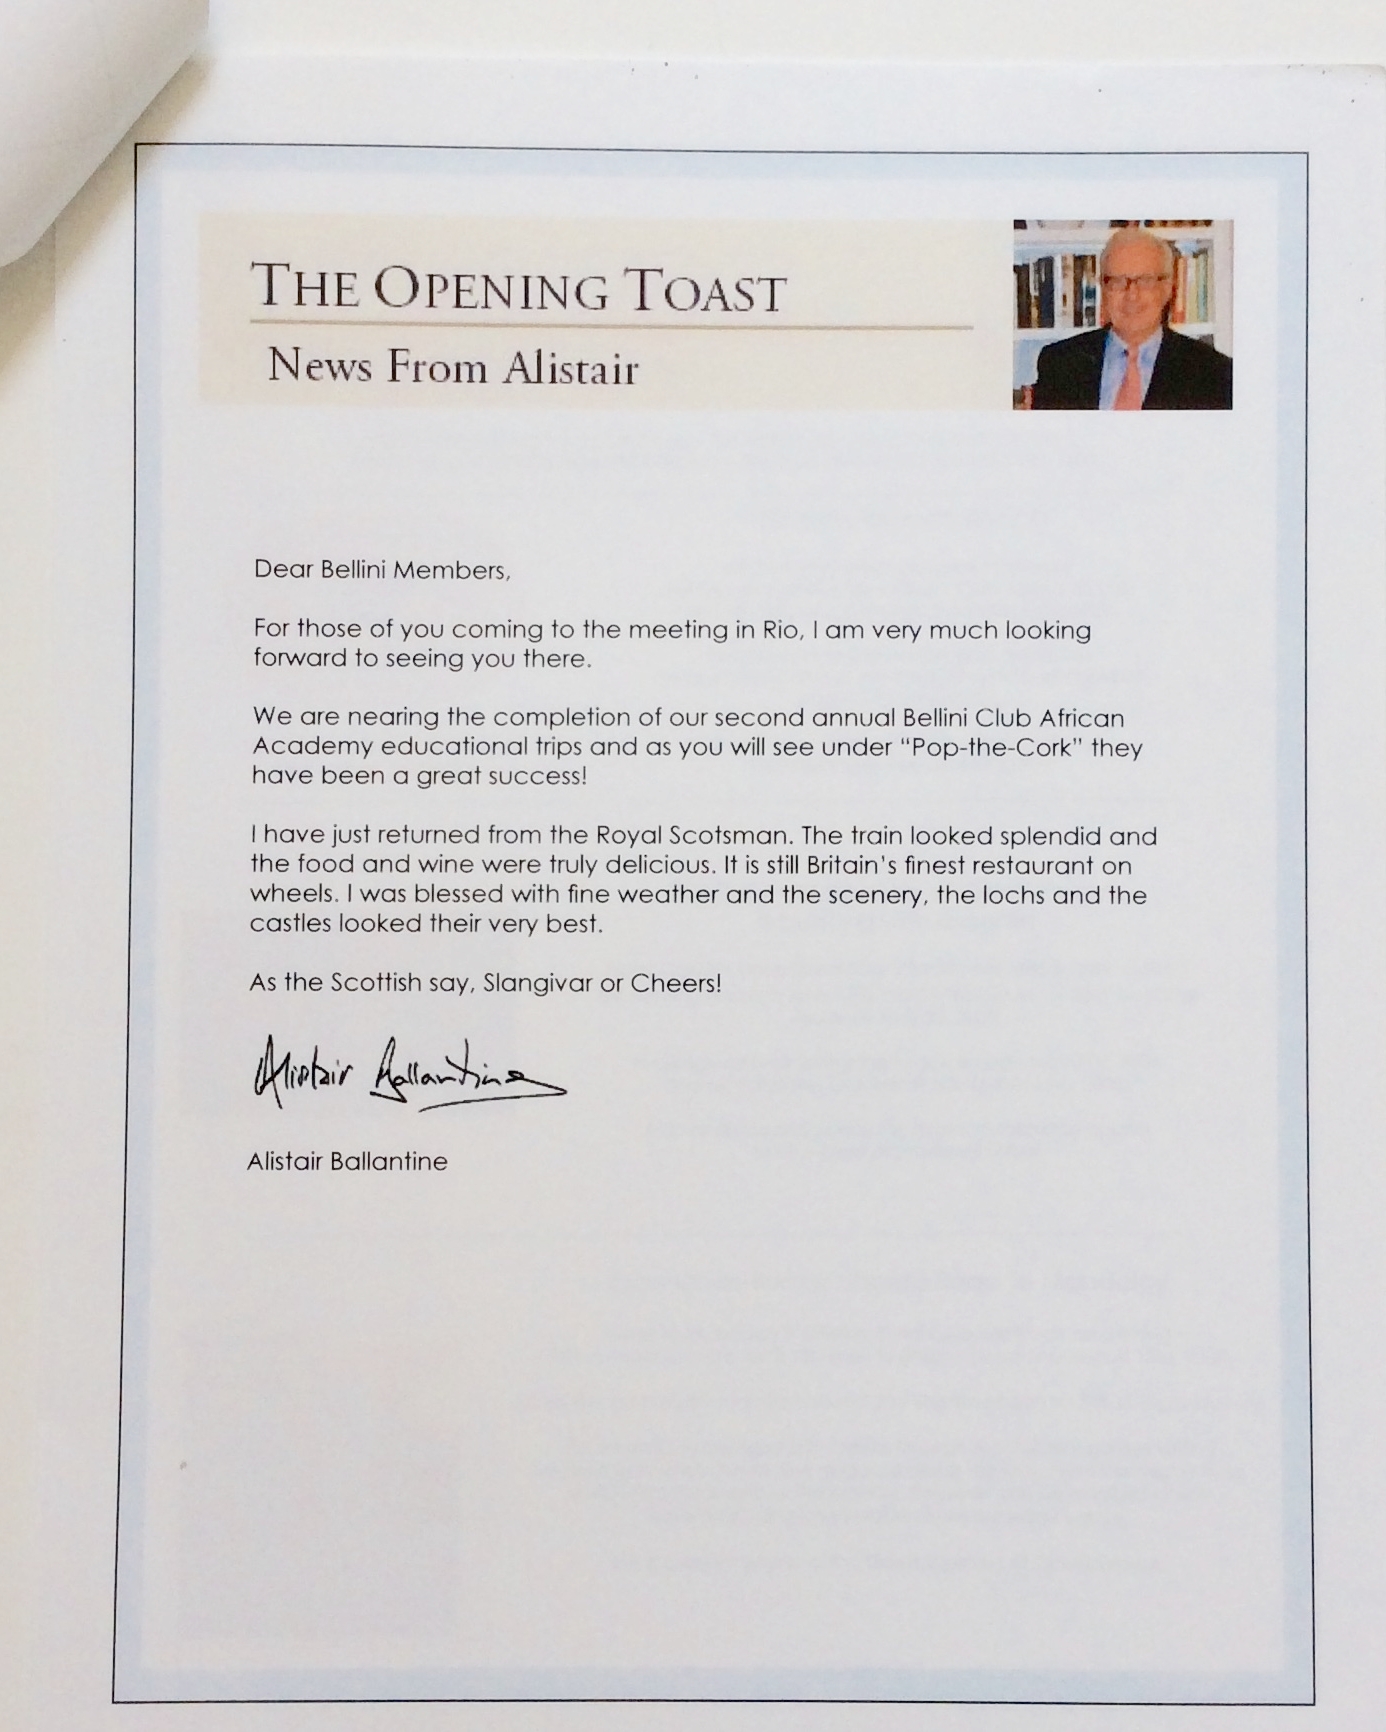 THE OPENING TOAST
News From Alistair
Dear Bellini Members,
For those of you coming to the meeting in Rio, I am very much looking
forward to seeing you there.
We are nearing the completion of our second annual Bellini Club African
Academy educational trips and as you will see under “Pop-the-Cork” they
have been a great success!
I have just returned from the Royal Scotsman. The train looked splendid and
the food and wine were truly delicious. It is still Britain's finest restaurant on
wheels. I was blessed with fine weather and the scenery, the lochs and the
castles looked their very best.
As the Scottish say, Slangivar or Cheers!
Alistair Ballantine
Alistair Ballantine